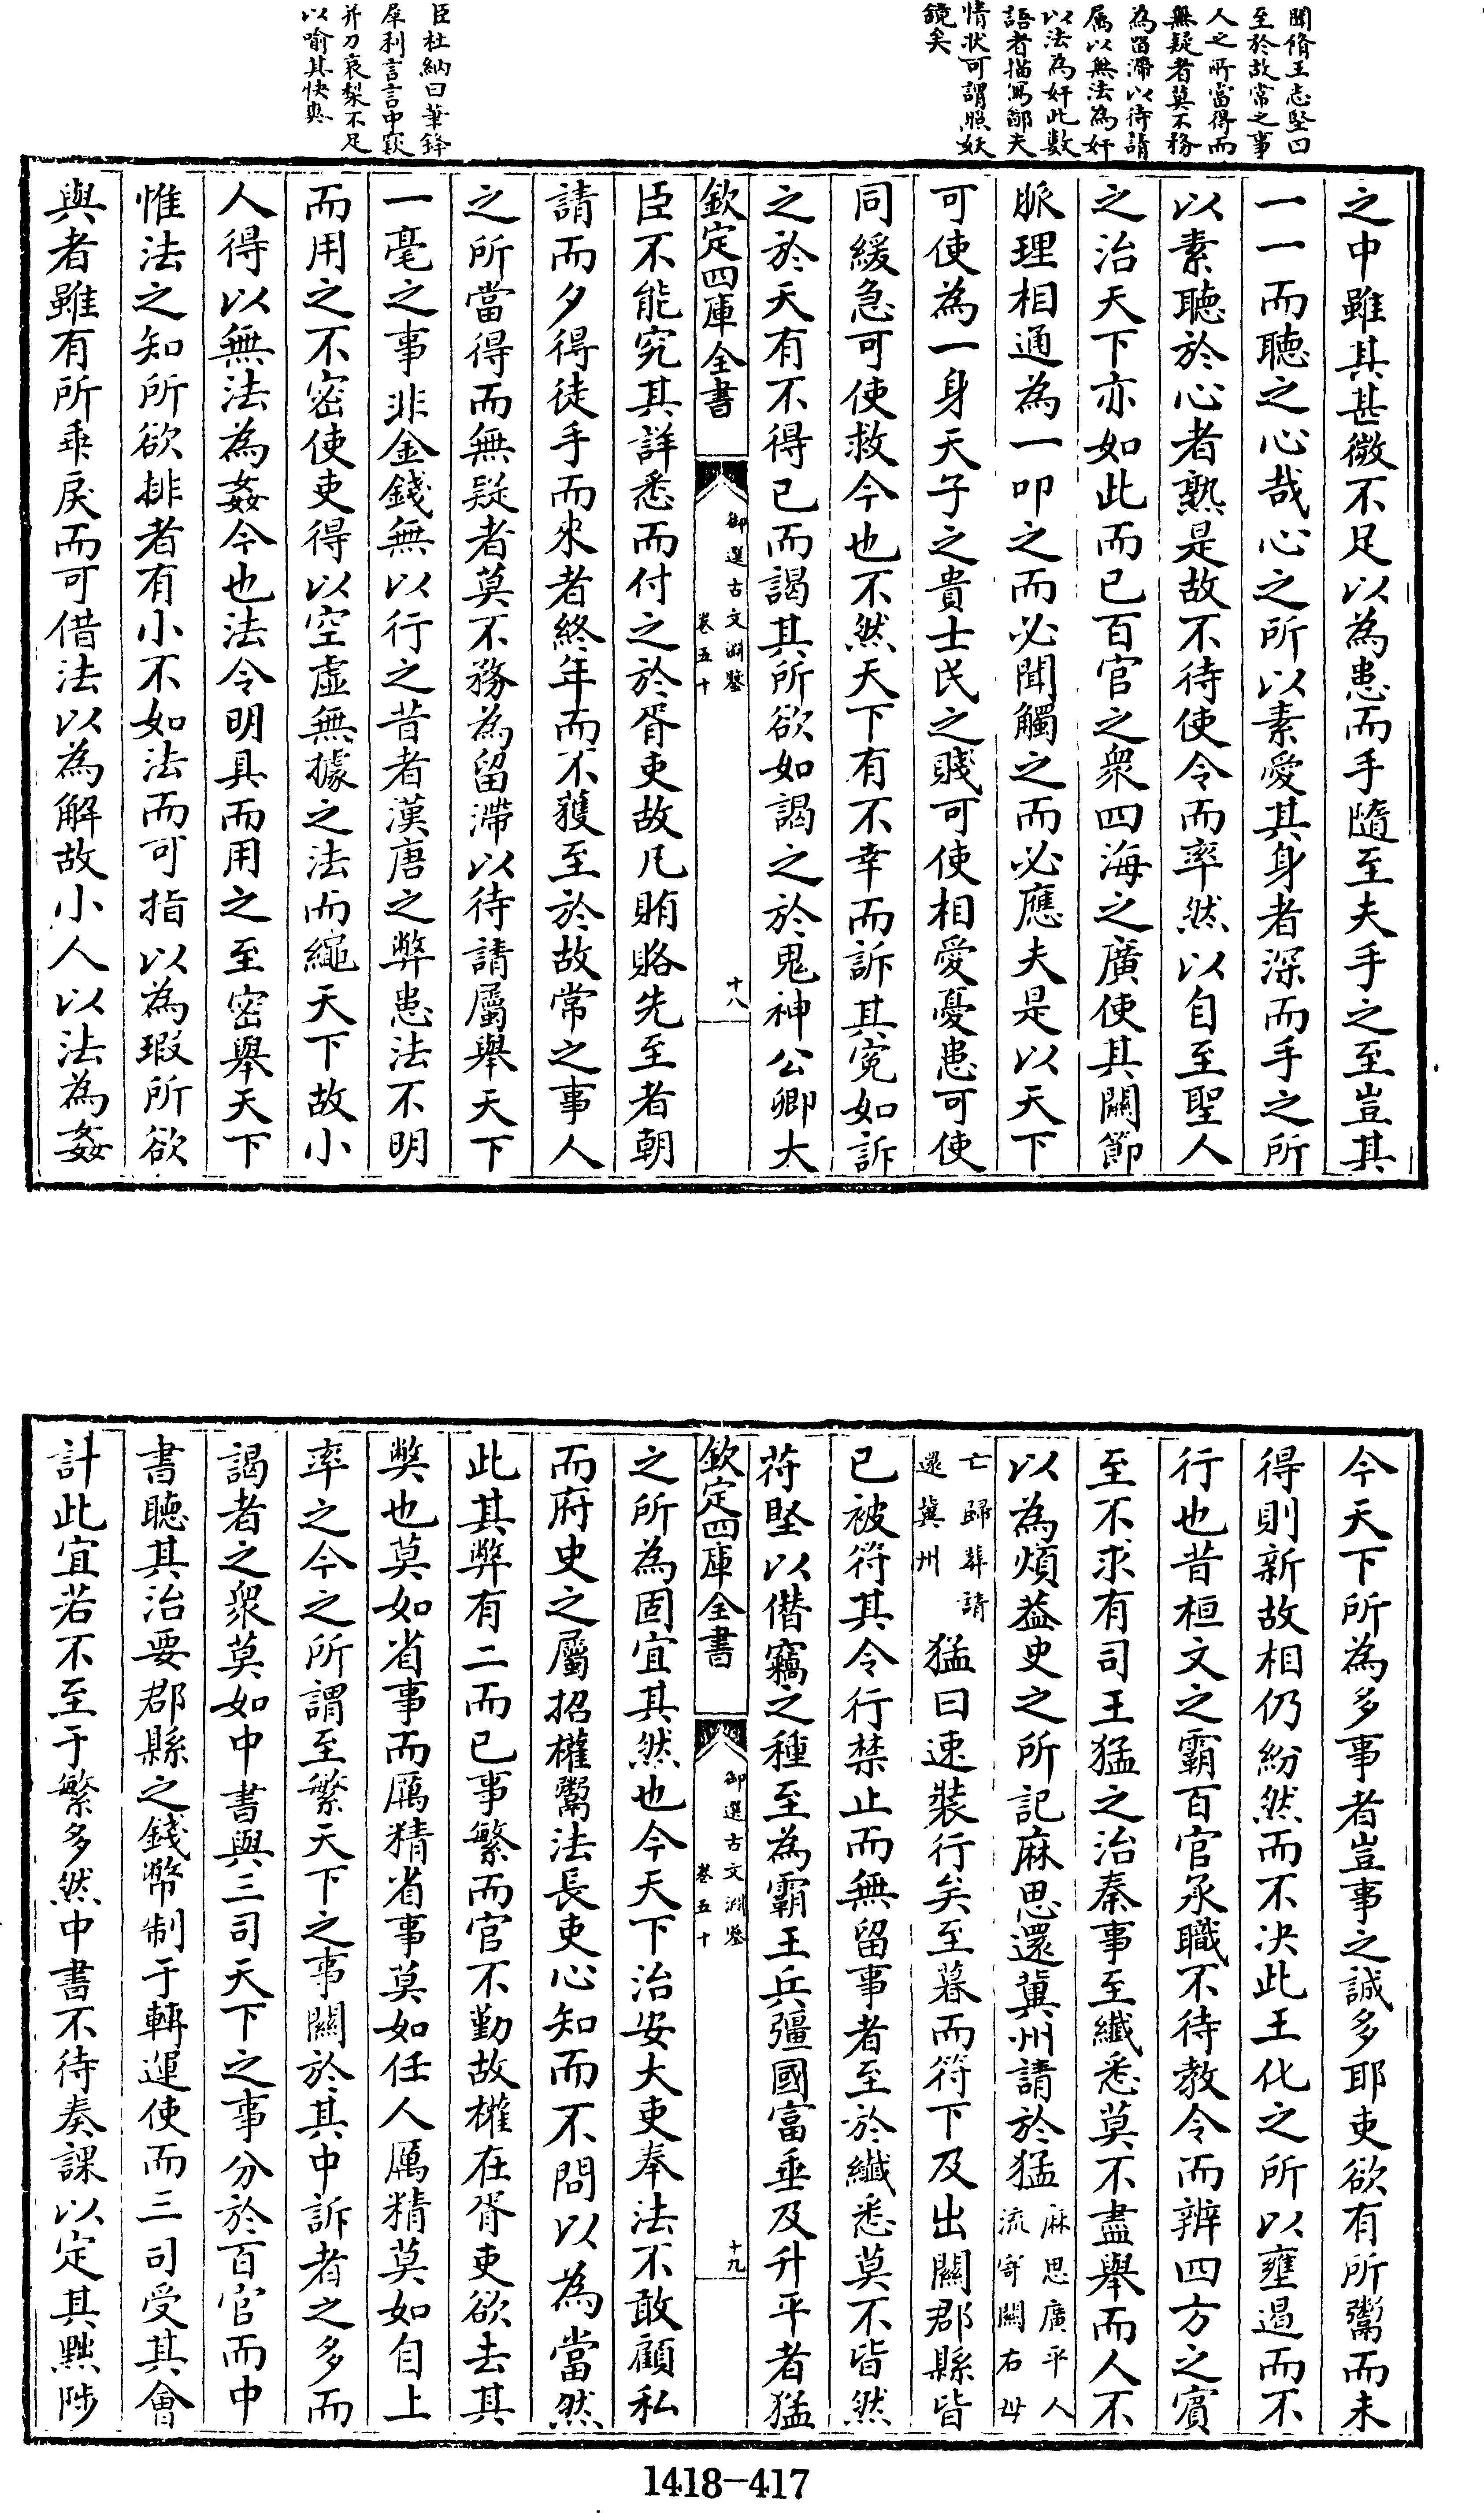 閒脩王志堅曰
至於故常之事
人之所當得而
無疑者莫不務
為留滯以待請
属以無法為奸
以法為奸此數
語者描寫鄙夫
情狀可謂照妖
鏡矣
臣杜納曰筆鋒
犀利言言中窽
并刀哀梨不足
以喻其快與
之中雖其甚微不足以為患而手隨至夫手之至豈其
一一而聽之心哉心之所以素愛其身者深而手之所
以素聽於心者熟是故不待使令而率然以自至聖人
之治天下亦如此而已百官之衆四海之廣使其關節
脈理相通為一叩之而必聞觸之而必應夫是以天下
可使為一身天子之貴士民之賤可使相愛憂患可使
同緩急可使救今也不然天下有不幸而訴其寃如訴
之於天有不得已而謁其所欲如謁之於鬼神公卿大
欽定四庫全書
御選古文淵鑒
卷五十
十八
臣不能究其詳悉而付之於胥吏故凡賄賂先至者朝
請而夕得徒手而來者終年而不獲至於故常之事人
之所當得而無疑者莫不務為留滯以待請屬舉天下
一毫之事非金錢無以行之昔者漢唐之弊患法不明
而用之不密使吏得以空虛無據之法而繩天下故小
人得以無法為姦今也法令明具而用之至密舉天下
惟法之知所欲排者有小不如法而可指以為瑕所欲
與者雖有所乖戾而可借法以為解故小人以法為姦
今天下所為多事者豈事之誠多耶吏欲有所鬻而未
得則新故相仍紛然而不决此王化之所以壅遏而不
行也昔桓文之霸百官承職不待教令而辨四方之賓
至不求有司王猛之治秦事至纖悉莫不盡舉而人不
以為煩葢史之所記麻思還冀州請於猛麻思廣平人流寄關右母
亡歸葬請還冀州猛曰速裝行矣至暮而符下及出關郡縣皆
已被符其令行禁止而無留事者至於纖悉莫不皆然
苻堅以僭竊之種至為霸王兵彊國富垂及升平者猛
欽定四庫全書
御選古文淵鑒
卷五十
十九
之所為固宜其然也今天下治安大吏奉法不敢顧私
而府史之屬招權鬻法長吏心知而不問以為當然
此其弊有二而已事繁而官不勤故權在胥吏欲去其
獘也莫如省事而厲精省事莫如任人厲精莫如自上
率之今之所謂至繁天下之事關於其中訴者之多而
謁者之衆莫如中書與三司天下之事分於百官而中
書聽其治要郡縣之錢幣制于轉運使而三司受其會
計此宜若不至于繁多然中書不待奏課以定其黜陟
1418-417